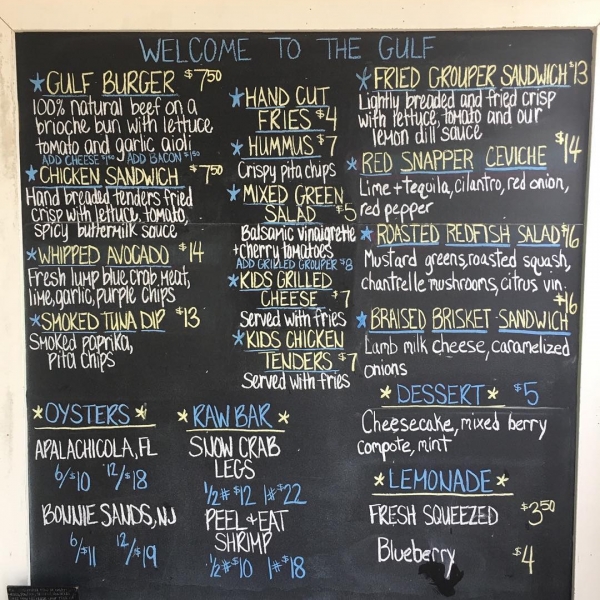 WELCOME TO THE GULF
GULF BURGER $7.50
100% natural beef on a
brioche bun with lettuce
tomato and garlic aioli
ADD CHEESE $1.50 ADD BACON $1.50
CHICKEN SANDWICH $7.50
Hand breaded tenders fried
crisp with lettuce, tomato,
spicy buttermilk sauce
WHIPPED AVOCADO $14
Fresh lump blue crab meat,
lime, garlic, purple chips
SMOKED TUNA DIP $13
Smoked paprika,
Pita chips
HAND CUT
FRIES $4
HUMMUS $7
Crispy pita chips
MIXED GREEN
SALAD $5
Balsamic vinaigrette
+ cherry tomatoes
ADD GRILLED GROUPER $8
KIDS GRILLED
CHEESE $7
Served with fries
KIDS CHICKEN
TENDERS $7
Served with fries
FRIED GROUPER SANDWICH $13
Lightly breaded and fried crisp
with lettuce, tomato and our
lemon dill sauce
RED SNAPPER CEVICHE $14
Lime + tequila, cilantro, red onion,
red pepper
ROASTED REDFISH SALAD $16
Mustard greens, roasted squash,
chantrelle mushrooms, citrus vin.
BRAISED BRISKET SANDWICH $16
Lamb milk cheese, caramelized
onions
DESSERT $5
Cheesecake, mixed berry
compote, mint
LEMONADE
FRESH SQUEEZED $3.50
Blueberry $4
OYSTERS
APALACHICOLA, FL
6/$10 12/$18
BONNIE SANDS, NJ
6/$11 12/$19
RAW BAR
SNOW CRAB
LEGS
1/2# $12 1# $22
PEEL + EAT
SHRIMP
1/2# $10 1# $18